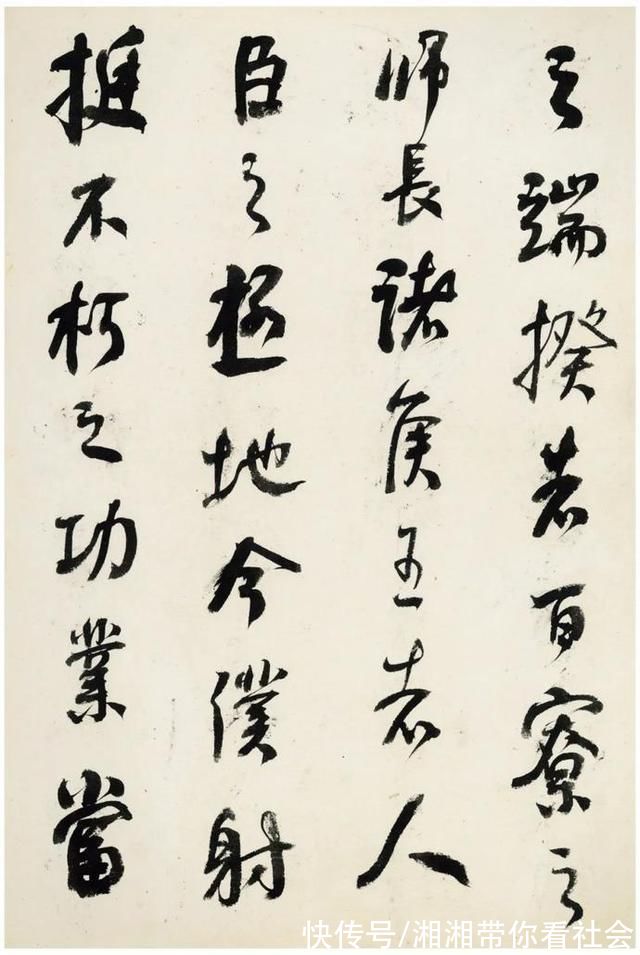 之端揆者百寮之
師長諸侯王者人
臣之極地今僕射
挺不朽之功業當
快传号/湘湘带你看社会